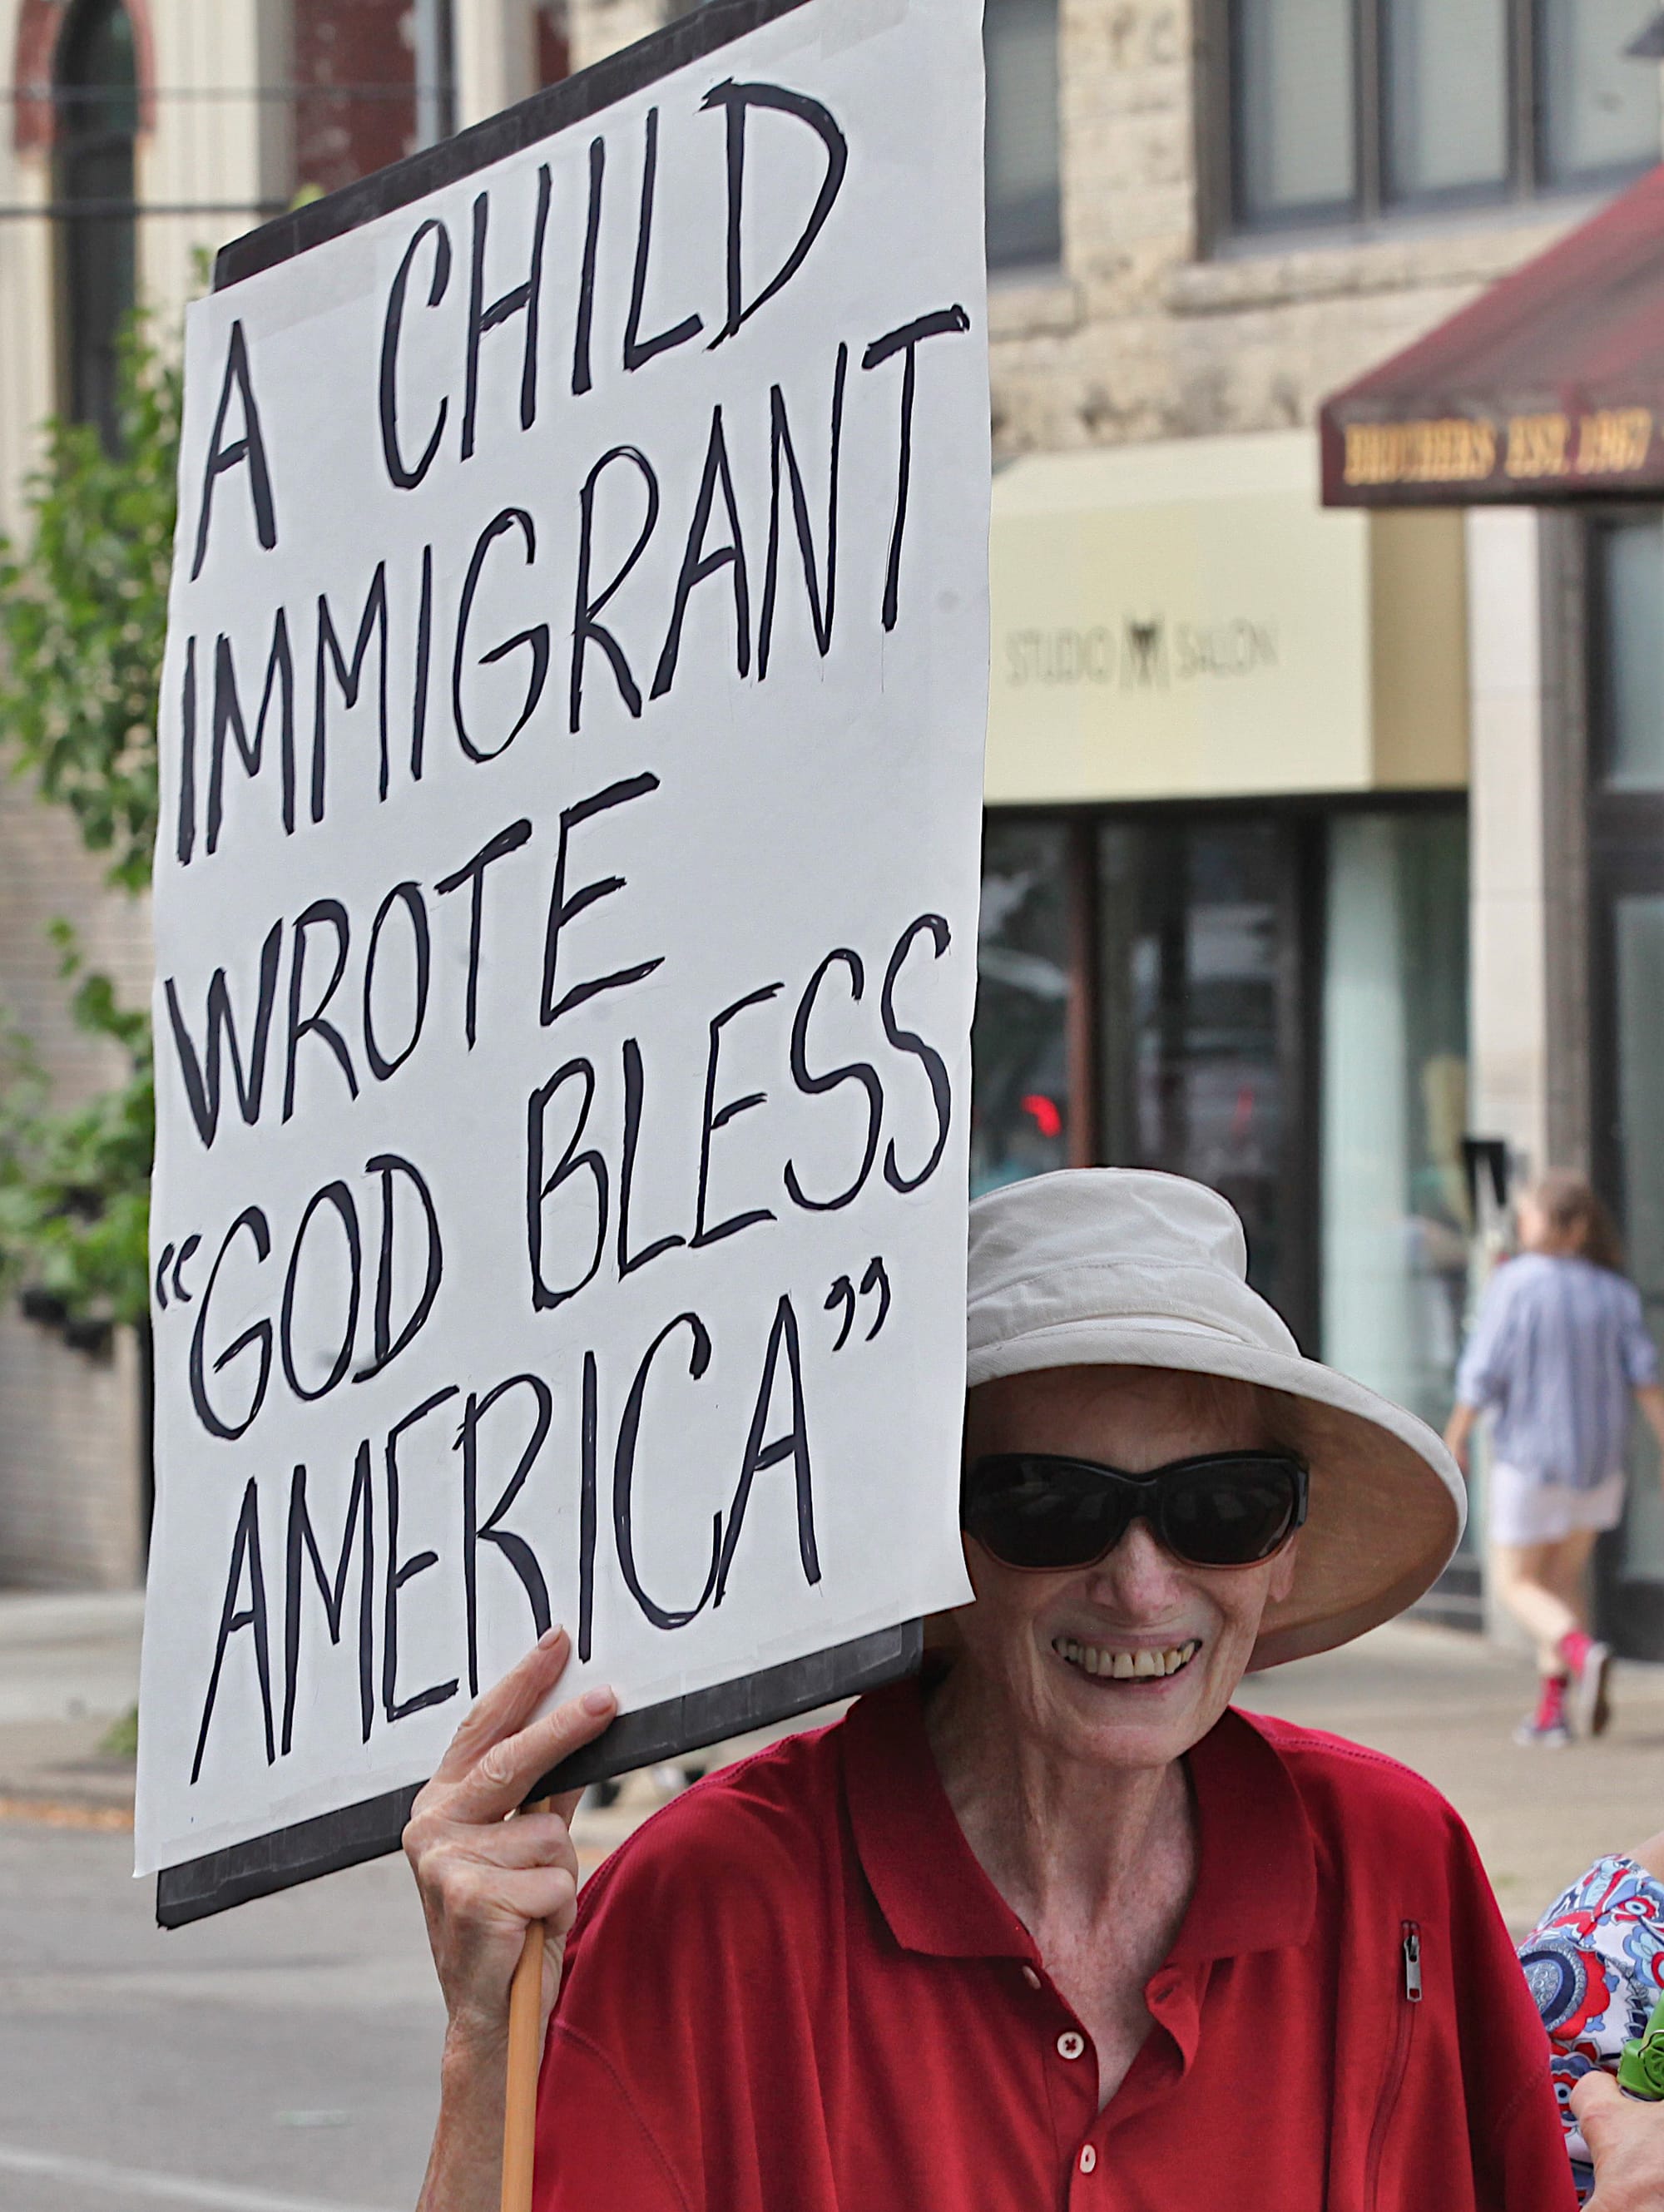 A CHILD
IMMIGRANT
WROTE
“GOD BLESS
AMERICA”
BROTHERS EST. 1967
STUDIO SALON